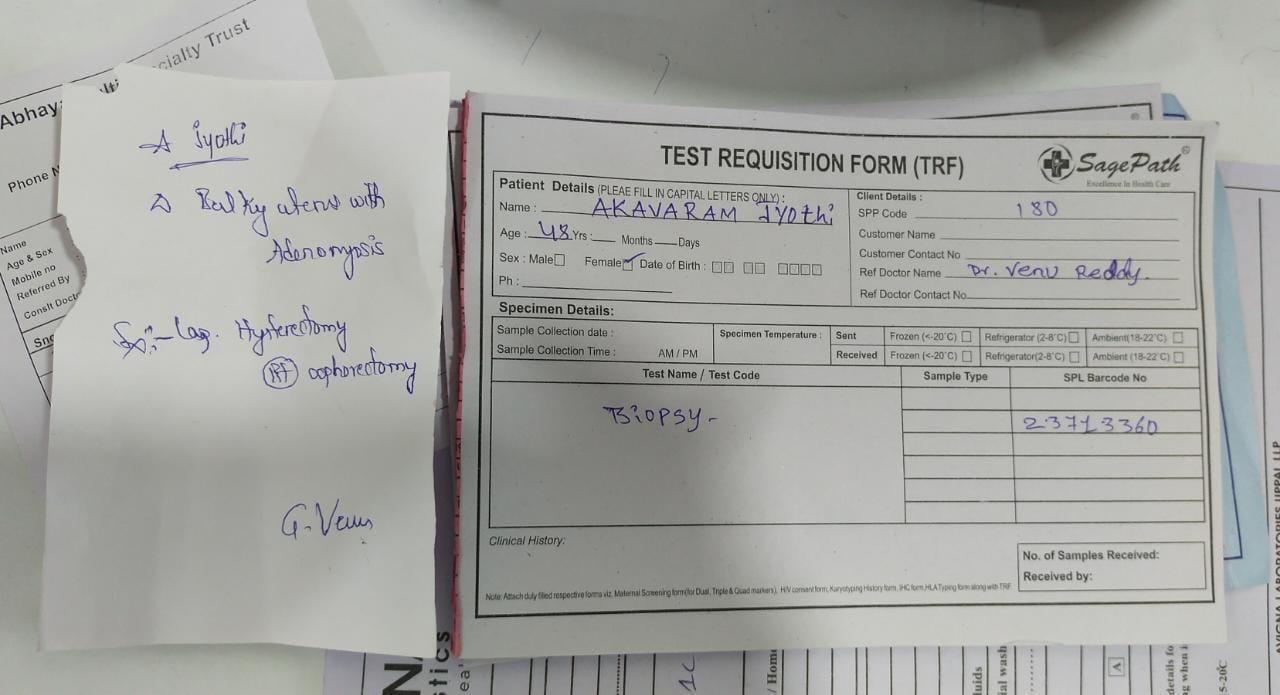 Abhay
cialty Trust
Phone N
Name
Age & Sex
Mobile no
Referred By
Conslt Doct
A Jyothi
Bulky uterus with
Adenomyosis
Sx:- Lap. Hysterectomy
Rt oophorectomy
G. Venu
TEST REQUISITION FORM (TRF)
SagePath
Excellence In Health Care
Patient Details (PLEAE FILL IN CAPITAL LETTERS ONLY) :
Name : AKAVARAM Jyothi
Age : 48 Yrs : Months Days
Sex : Male Female Date of Birth :
Ph :
Client Details :
SPP Code 180
Customer Name
Customer Contact No
Ref Doctor Name Dr. Venu Reddy.
Ref Doctor Contact No.
Specimen Details:
Sample Collection date :
Sample Collection Time : AM / PM
Specimen Temperature :
Sent Frozen (<-20°C) Refrigerator (2-8°C) Ambient(18-22°C)
Received Frozen (<-20°C) Refrigerator(2-8°C) Ambient (18-22°C)
Test Name / Test Code Sample Type SPL Barcode No
Biopsy - 23713360
Clinical History:
No. of Samples Received:
Received by:
Note: Attach duly filled respective forms viz. Maternal Screening form(for Dual, Triple & Quad markers), HIV consent form, Karyotyping History form, IHC form, HLA Typing form along with TRF
tics
/ Home
A
details fo
5-20°C
AVIGNA LABORATORIES UPPAL LLP